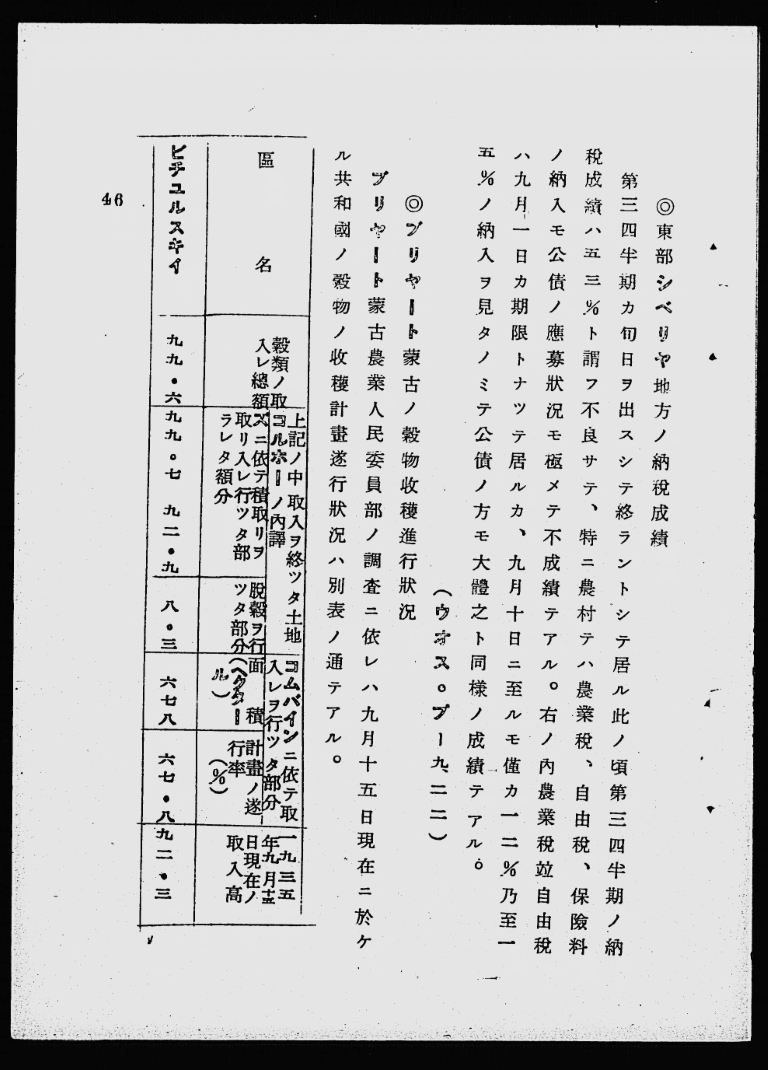 ◎東部シベリヤ地方ノ納税成績
第三四半期カ旬日ヲ出スシテ終ラントシテ居ル此ノ頃第三四半期ノ納
税成績ハ五三%ト謂フ不良サテ、特ニ農村テハ農業税、自由税、保險料
ノ納入モ公債ノ應募狀況モ極メテ不成績テアル。右ノ內農業税竝自由税
ハ九月一日カ期限トナツテ居ルカ、九月十日ニ至ルモ僅カ一二%乃至一
五%ノ納入ヲ見タノミテ公債ノ方モ大體之ト同様ノ成績テアル。
(ウオス。プー九、二二)
◎ブリヤート蒙古ノ穀物收穫進行狀況
ブリヤート蒙古農業人民委員部ノ調査ニ依レハ九月十五日現在ニ於ケ
ル共和國ノ穀物ノ收穫計畫遂行狀況ハ別表ノ通テアル。
區名
穀類ノ取
入レ總額
上記ノ中取入ヲ終ツタ土地
ノ內譯
コルホー
ズニ依テ積取リヲ
取リ入レ行ツタ部
ラレタ額分
脫穀ヲ行
ツタ部分
コムバインニ依テ取
入レヲ行ツタ部分
面積
(ヘクター
ル)
計畫ノ遂
行率
(%)
一九三五
年九月十五
日現在ノ
取入高
ビチユルスキイ
九九・六
九九。七
九二・九
八。三
六七八
六七・八
九二・三
46